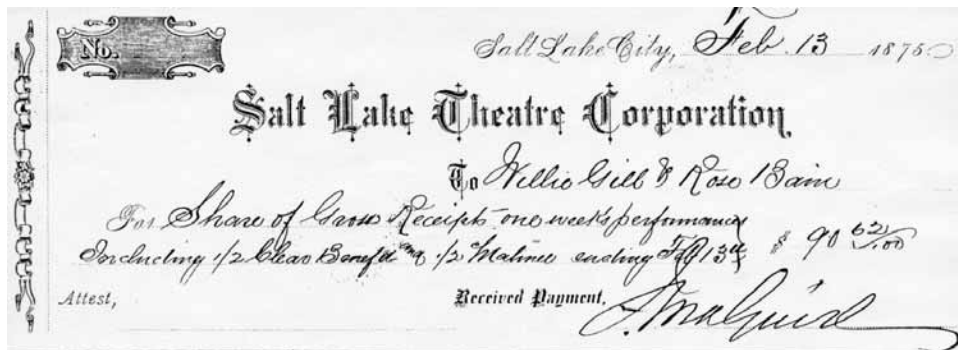 No.
Salt Lake City, Feb. 13 1875
Salt Lake Theatre Corporation,
To Willie Gill & Rose Bain
For Share of Gross Receipts one week's performances
Including 1/2 Clear Benefit and 1/2 Matinee ending Feb 13th $ 90 62/100
Attest,
Received Payment,